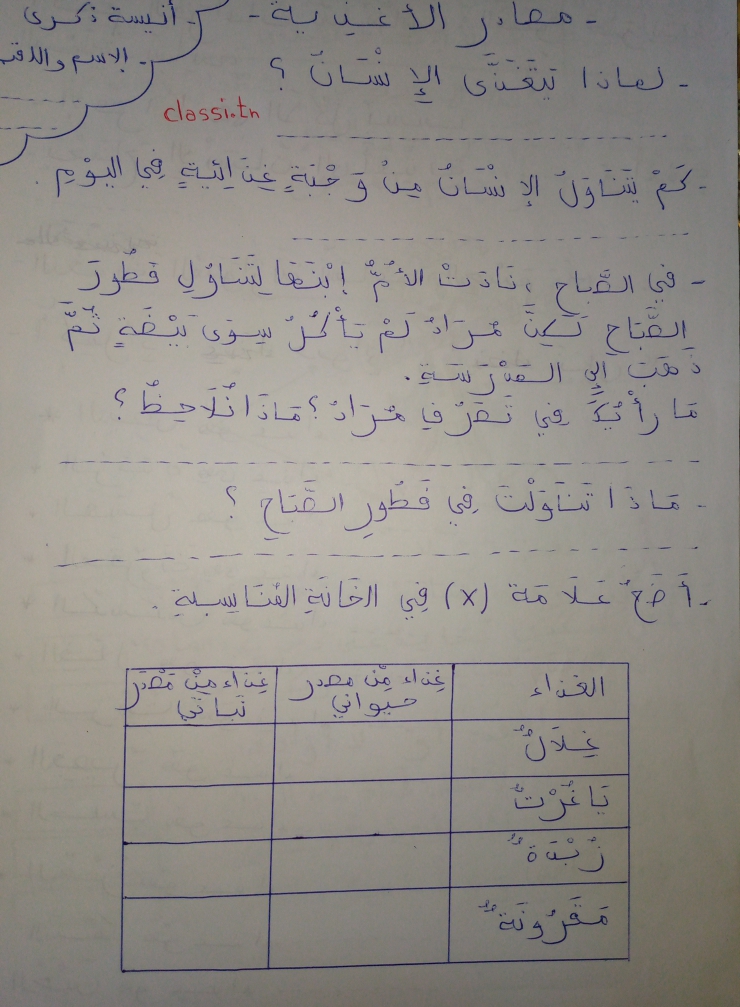 - مصادر الأغذية -
- أنيسة ذكرى
- الاسم واللقب
- لماذا يَتَغَذَّى الإِنْسَانُ ؟
classi.tn
- كَمْ يَتَنَاوَلُ الإِنْسَانُ مِنْ وَجْبَةٍ غِذَائِيةٍ فِي اليَوْمِ .
- في الصَّبَاحِ ، نَادَتْ الأُمُّ إِبْنَهَا لِتَنَاوُلِ فَطُورَ
الصَّبَاحِ لَكِنَّ مُرَادُ لَمْ يَأْكُلْ سِوَى بَيْضَةٍ ثُمَّ
ذَهَبَ إلى المَدْرَسَةِ .
مَا رَأْيُكَ فِي تَصَرُفِ مُرَادُ ؟ مَاذَا نُلَاحِظُ ؟
- مَاذَا تَنَاوَلْتَ فِي فَطُورِ الصَّبَاحِ ؟
- أَضَعُ عَلَامَة (x) فِي الخَانَةِ المُنَاسِبةِ .
الغذاء غِذاء مِنْ مصدر حيواني غِذاء مِنْ مَصْدَر نَباتي
غِلَالٌ
يَاغُرْتٌ
زُبْدَةٌ
مَقَرُونَةٌ